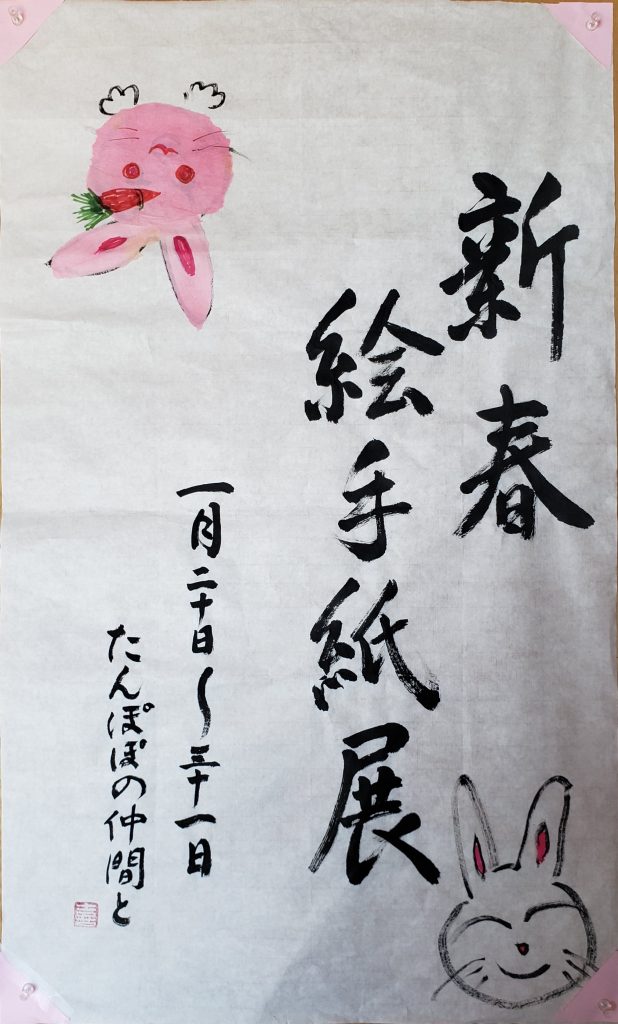 新春
絵手紙展
一月二十日〜三十一日
たんぽぽの仲間と